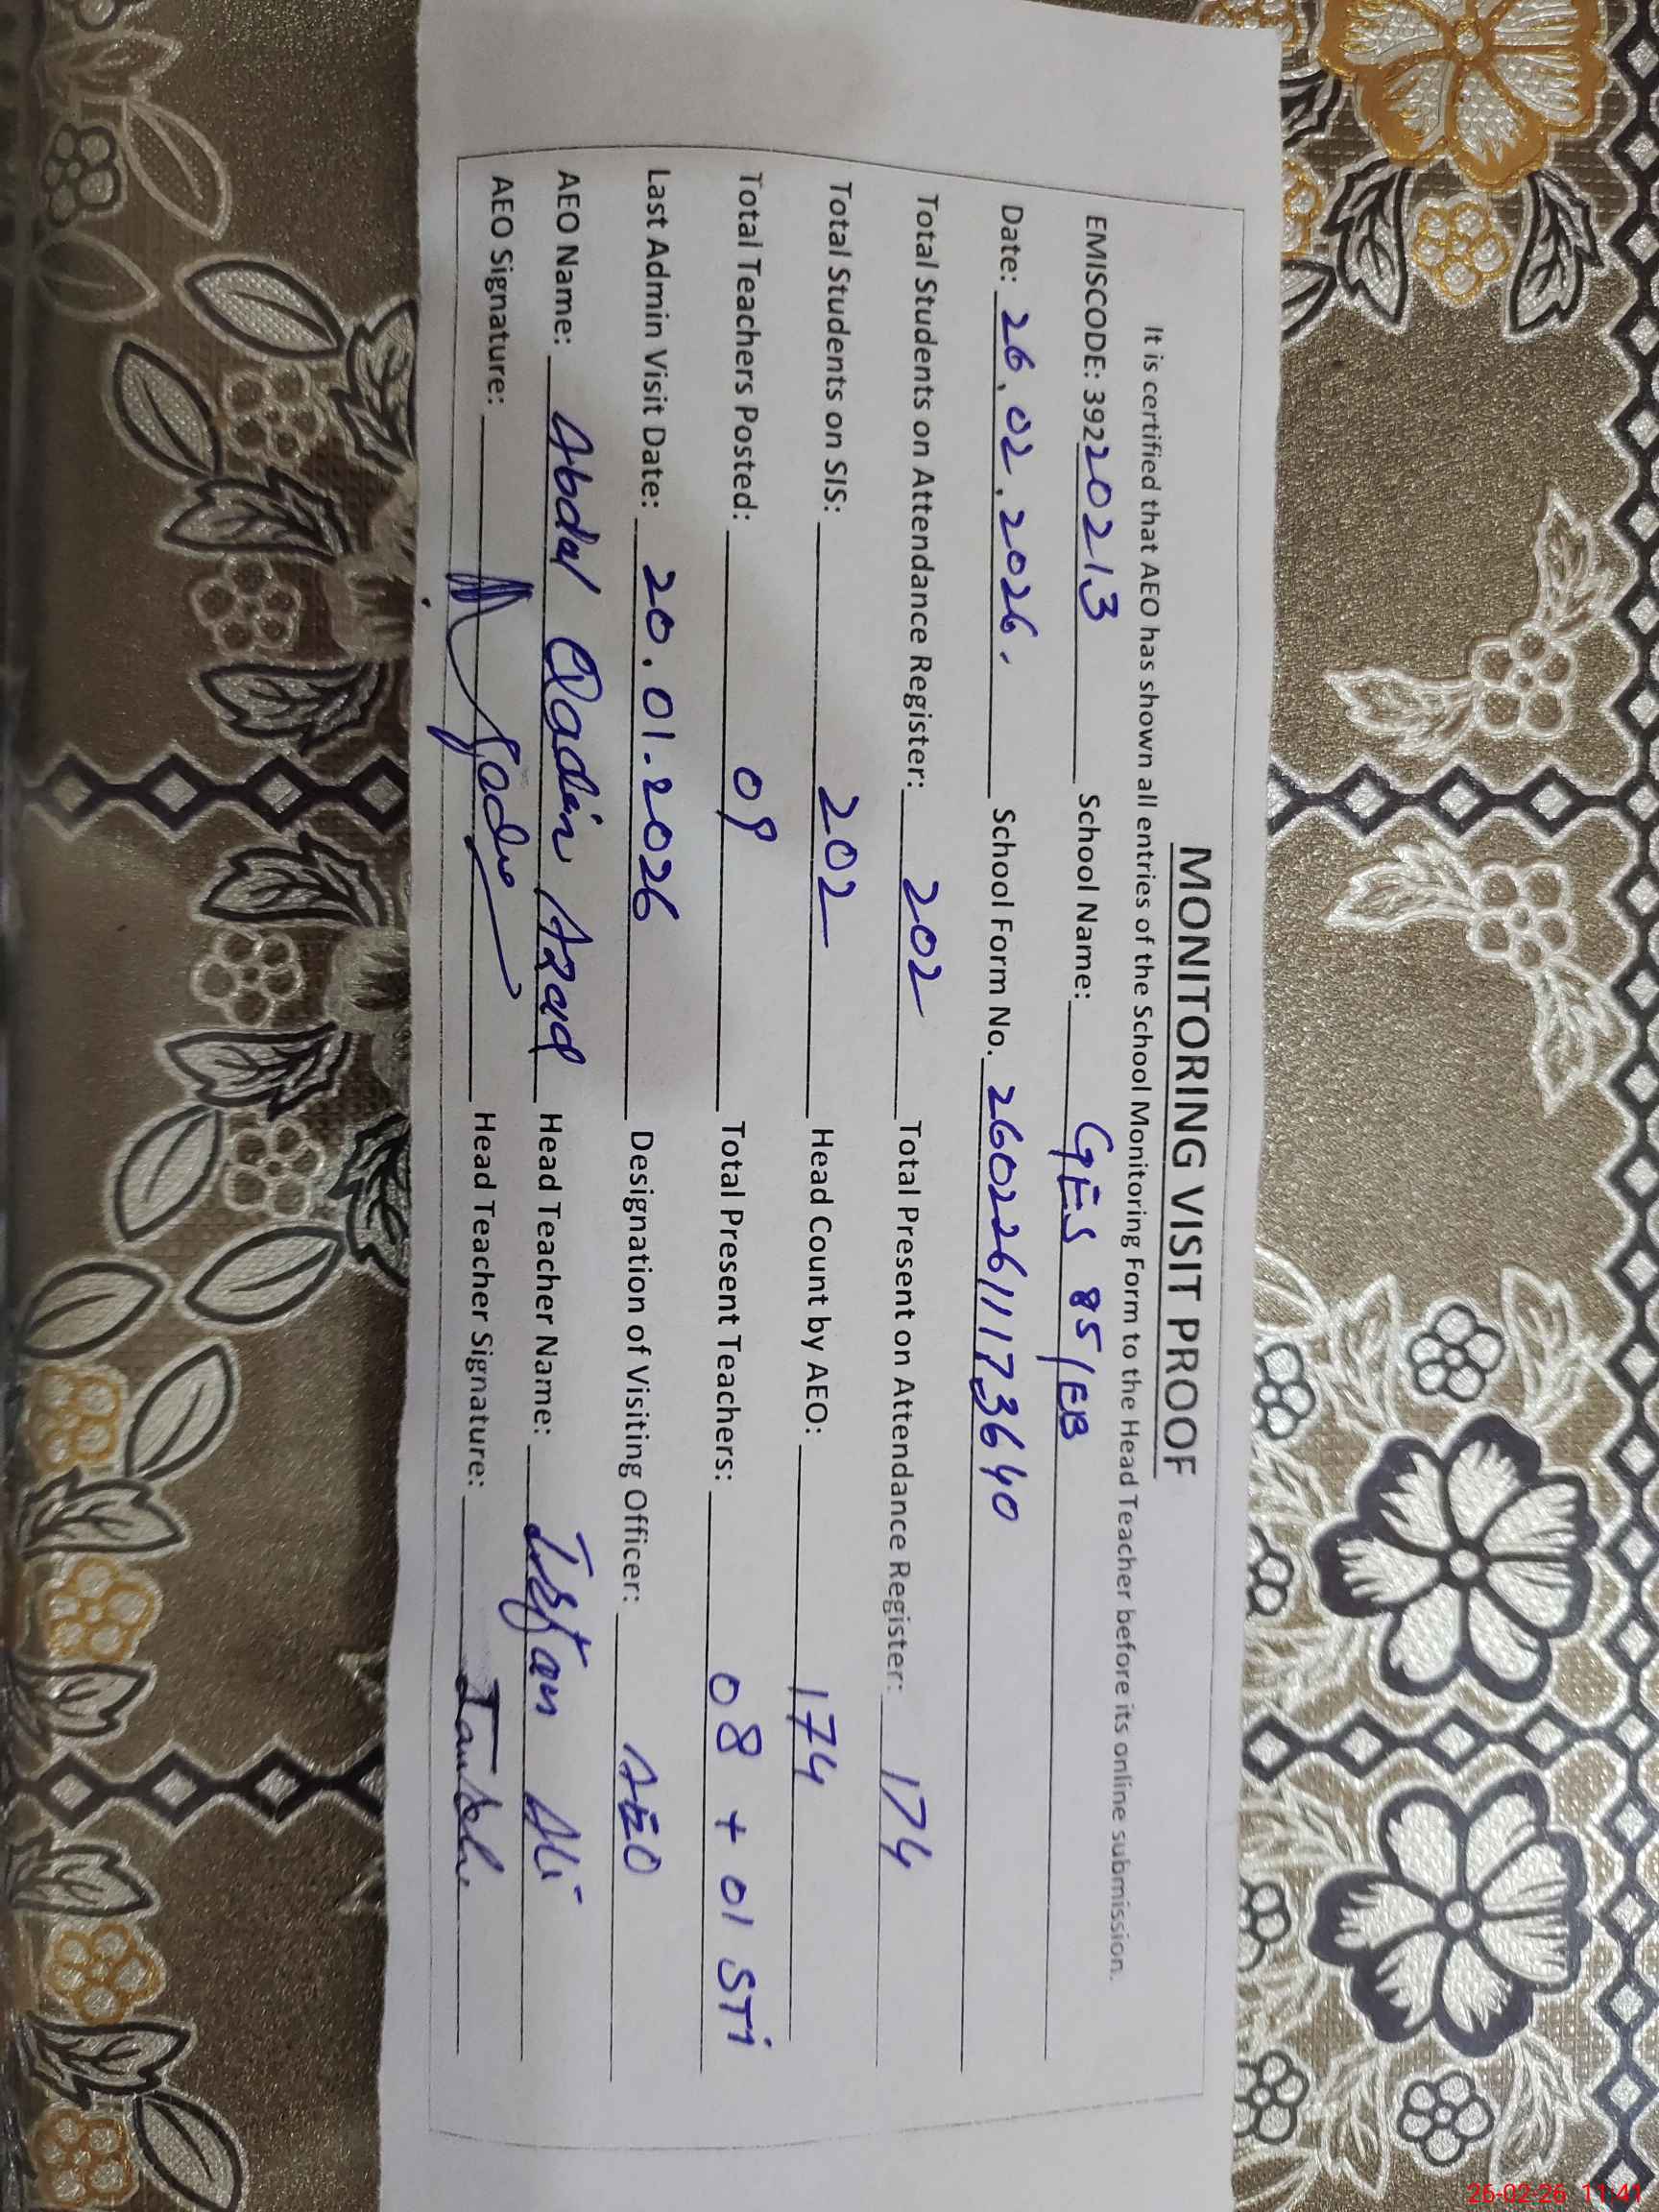 MONITORING VISIT PROOF
It is certified that AEO has shown all entries of the School Monitoring Form to the Head Teacher before its online submission.
EMISCODE: 39220213 School Name: GES 85/EB
Date: 26.02.2026. School Form No. 26022611173640
Total Students on Attendance Register: 202 Total Present on Attendance Register: 174
Total Students on SIS: 202 Head Count by AEO: 174
Total Teachers Posted: 09 Total Present Teachers: 08 + 01 STi
Last Admin Visit Date: 20.01.2026 Designation of Visiting Officer: AEO
AEO Name: Abdal Qadir Azad Head Teacher Name: Irfan Ali
AEO Signature: Head Teacher Signature:
26-02-26 11:41